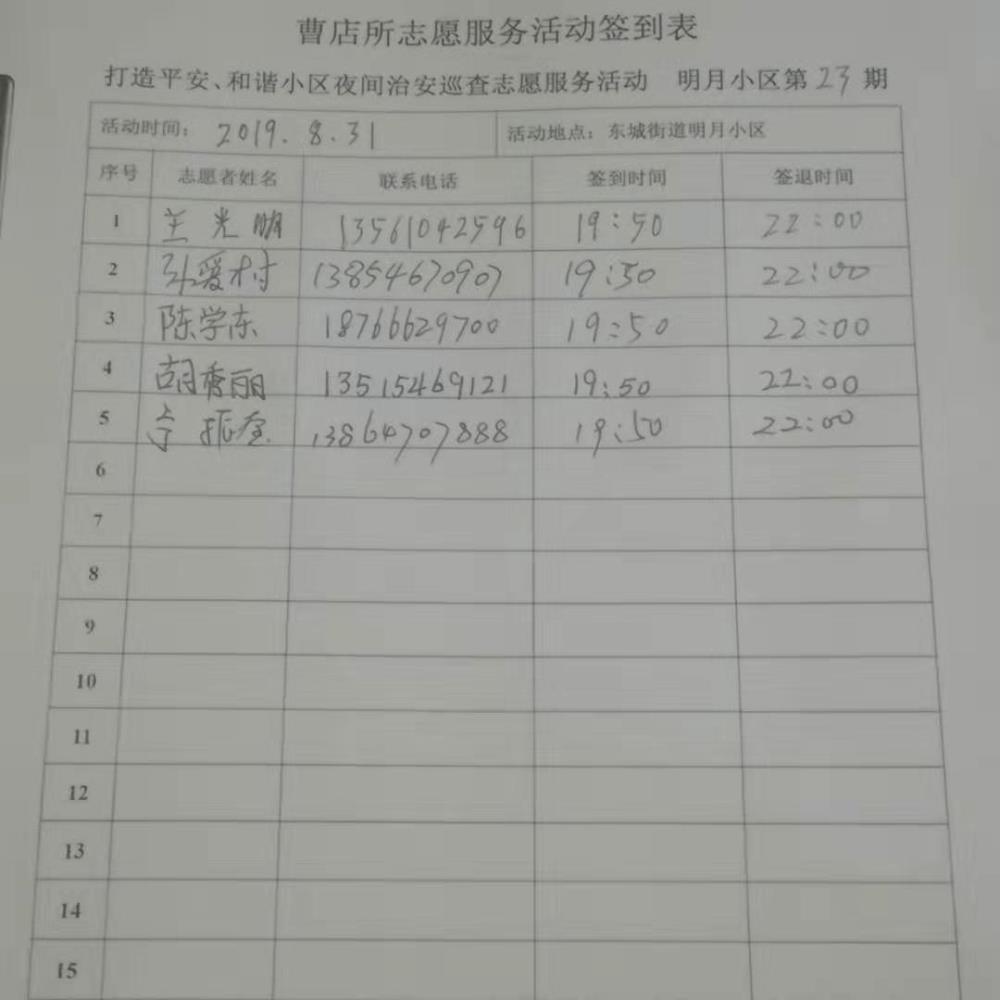 曹店所志愿服务活动签到表
打造平安、和谐小区夜间治安巡查志愿服务活动 明月小区第23期
活动时间: 2019.8.31 活动地点: 东城街道明月小区
序号 志愿者姓名 联系电话 签到时间 签退时间
1 兰光明 13561042596 19:50 22:00
2 孙爱村 13854670907 19:50 22:00
3 陈学东 18766629700 19:50 22:00
4 胡秀丽 13515469121 19:50 22:00
5 振奎 13864707888 19:50 22:00
6
7
8
9
10
11
12
13
14
15